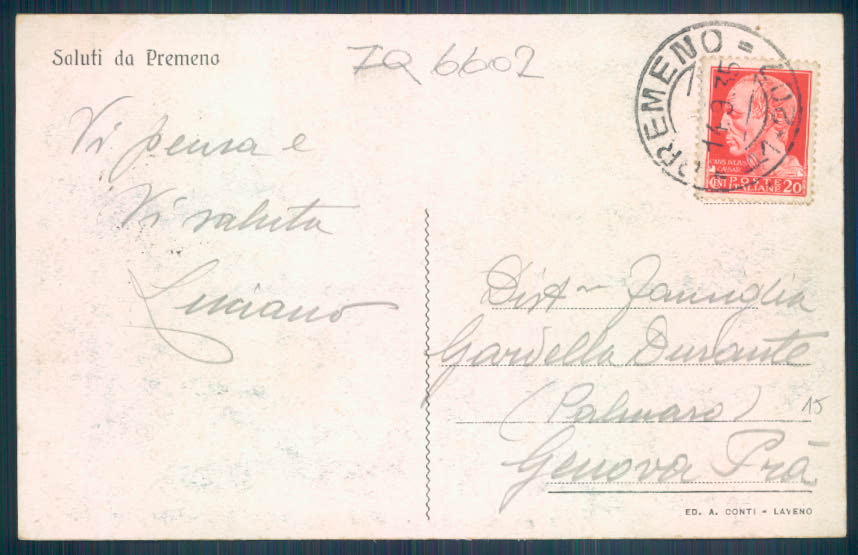 Saluti da Premeno
ZQ 6602
PREMENO =
14.9.35
CAIVS IVLIVS
CAESAR
CENT POSTE ITALIANE 20
Vi pensa e
Vi saluta
Luciano
Dist~ Famiglia
Gardella Durante
(Palmaro)
Genova Prà
15
ED. A. CONTI - LAVENO